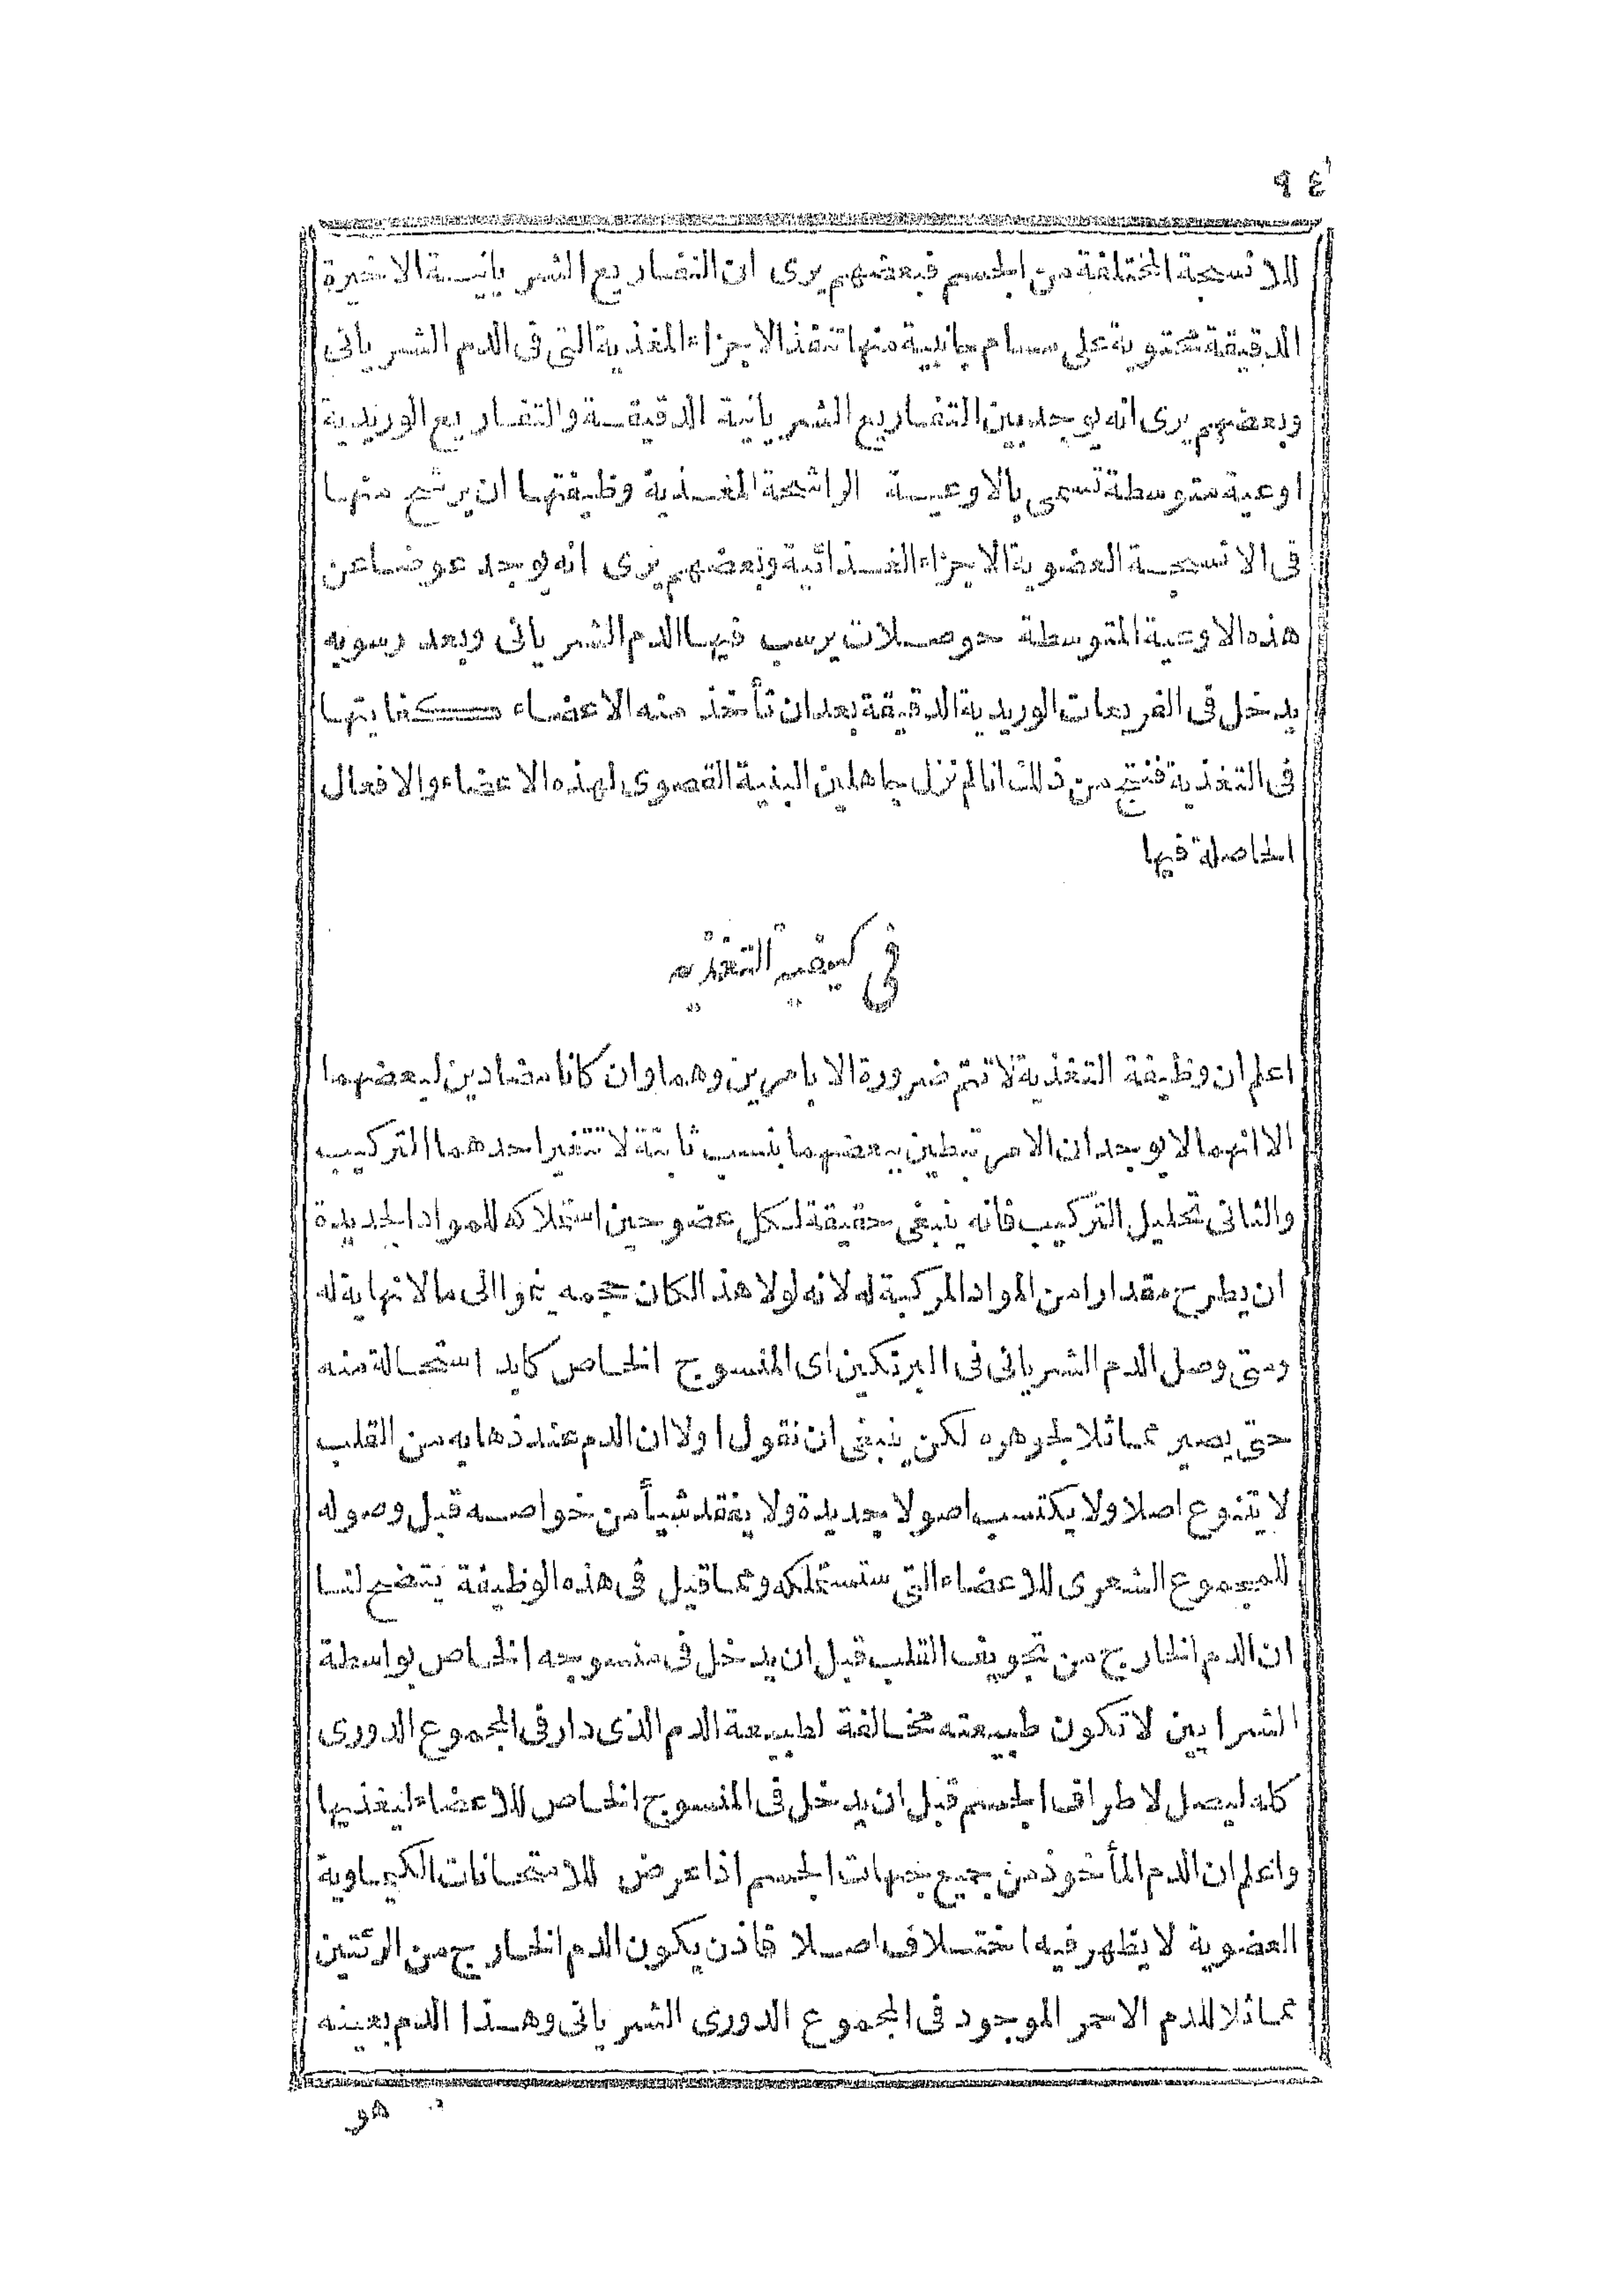 ٩٤
للانسجة المختلفة من الجسم فبعضهم يرى ان التفاريع الشريانية الاخيرة
الدقيقة محتوية على مسام جانبية منها تنفذ الاجزاء المغذية التى فى الدم الشريانى
وبعضهم يرى انه يوجد بين التفاريع الشريانية الدقيقة والتفاريع الوريدية
اوعية متوسطة تسمى بالاوعية الراشحة المغذية وظيفتها ان يرشح منها
فى الانسجة العضوية الاجزاء الغذائية وبعضهم يرى انه يوجد عوضا عن
هذه الاوعية المتوسطة حوصلات يرسب فيها الدم الشريانى وبعد رسوبه
يدخل فى الفريعات الوريدية الدقيقة بعد ان تأخذ منه الاعضاء كفايتها
فى التغذية فنتج من ذلك انا لم نزل جاهلين البنية القصوى لهذه الاعضاء والافعال
الحاصلة فيها
فى كيفية التغذيه
اعلم ان وظيفة التغذية لا تتم ضرورة الا بامرين وهما وان كانا مضادين لبعضهما
الا انهما لا يوجدان الا مرتبطين ببعضهما بنسب ثابتة لا تتغير احدهما التركيب
والثانى تحليل التركيب فانه ينبغى حقيقة لكل عضو حين استملاكه للمواد الجديدة
ان يطرح مقدارا من المواد المركبة له لانه لولا هذا لكان حجمه ينموا الى ما لا نهاية له
ومتى وصل الدم الشريانى فى البرنكين اى المنسوج الخاص كابد استحالة منه
حتى يصير مماثلا لجوهره لكن ينبغى ان نقول اولا ان الدم عند ذهابه من القلب
لا يتنوع اصلا ولا يكتسب اصولا جديدة ولا يفقد شيأ من خواصه قبل وصوله
للمجموع الشعرى للاعضاء التى ستستملكه ومما قيل فى هذه الوظيفة يتضح لنا
ان الدم الخارج من تجويف القلب قبل ان يدخل فى منسوجه الخاص بواسطة
الشرايين لا تكون طبيعته مخالفة لطبيعة الدم الذى دار فى المجموع الدورى
كله ليصل لاطراف الجسم قبل ان يدخل فى المنسوج الخاص للاعضاء ليغذيها
واعلم ان الدم المأخوذ من جميع جهات الجسم اذا عرض للامتحانات الكيماوية
العضوية لا يظهر فيه اختلاف اصلا فاذن يكون الدم الخارج من الرئتين
مماثلا للدم الاحمر الموجود فى المجموع الدورى الشريانى وهذا الدم بعينه
هو